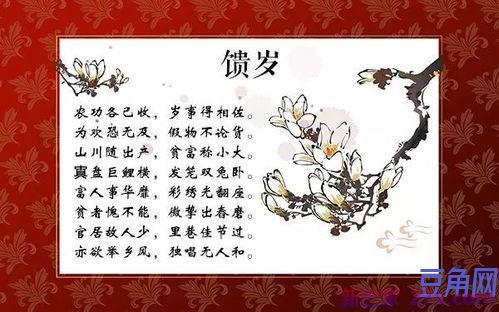 馈岁
农功各已收，岁事得相佐。
为欢恐无及，假物不论货。
山川随出产，贫富称小大。
寘盘巨鲤横，发笼双兔卧。
富人事华靡，彩绣光翻座。
贫者愧不能，微挚出春磨。
官居故人少，里巷佳节过。
亦欲举乡风，独唱无人和。
豆角网